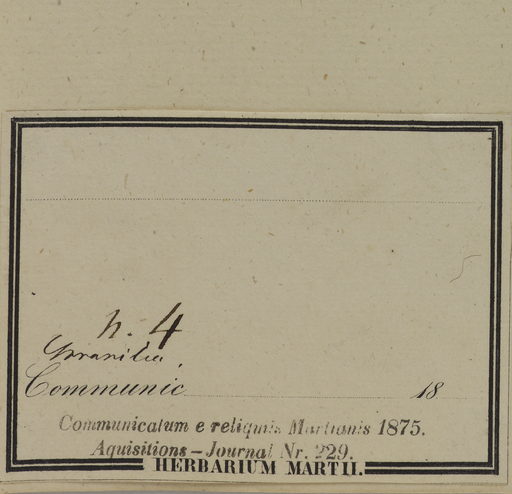 n. 4
Brasilia.
Communic 18
Communicatum e reliquiis Martianis 1875.
Aquisitions – Journal Nr. 229.
HERBARIUM MARTII.